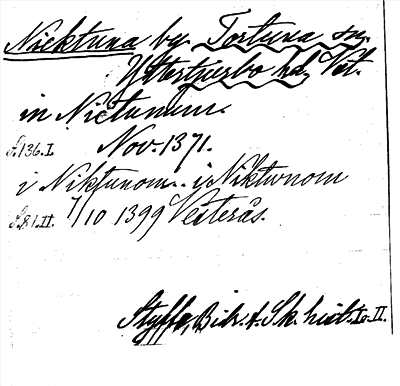 Nicktuna by. Tortuna sn.
Yttertjurbo hd. Vst.
in Nictunum.
S. 136. I. Nov. 1371.
i Niktunom.. i Niktwnom
S. 81. II. 7/10 1399 Vesterås.
Styffe, Bidr. t. Sk. hist. I o. II.